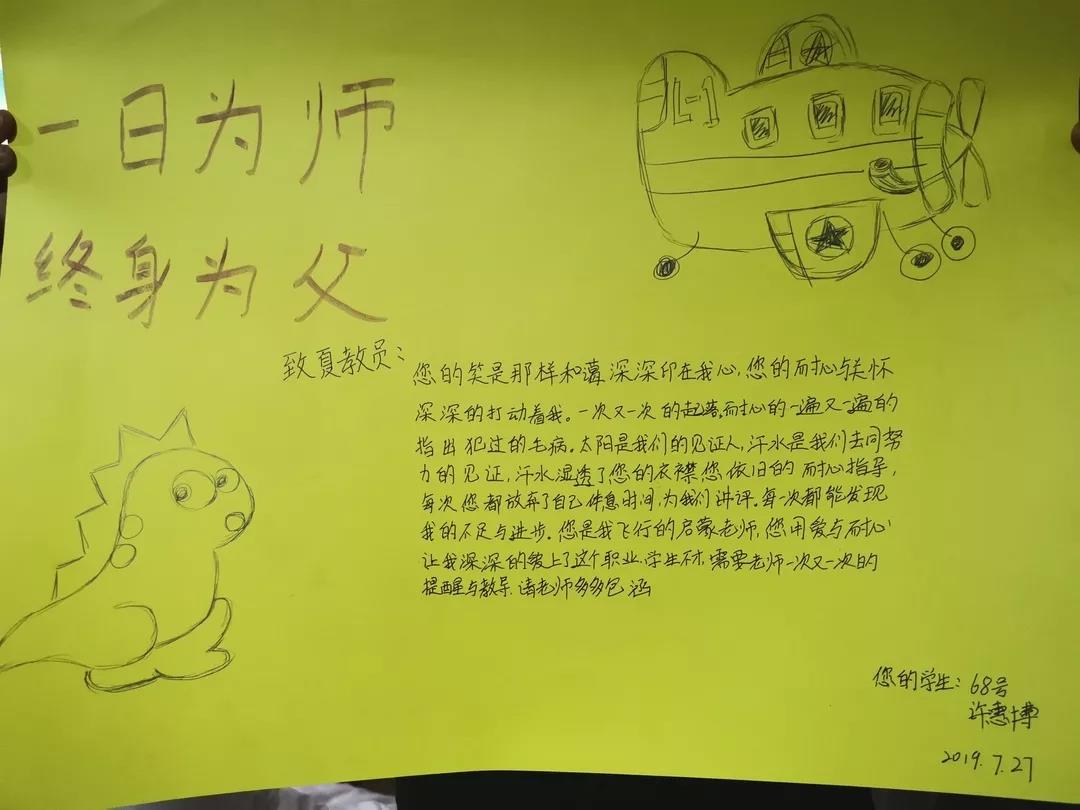 一日为师
终身为父
L-1
致夏教员：
您的笑是那样和蔼深深印在我心，您的耐心与关怀
深深的打动着我。一次又一次的起落，耐心的一遍又一遍的
指出犯过的毛病。太阳是我们的见证人，汗水是我们共同努
力的见证，汗水湿透了您的衣襟您依旧的耐心指导，
每次您都放弃了自己休息时间，为我们讲评。每一次都能发现
我的不足与进步。您是我飞行的启蒙老师，您用爱与耐心
让我深深的爱上了这个职业，学生不才，需要老师一次又一次的
提醒与教导，请老师多多包涵
您的学生：68号
许惠博
2019.7.27